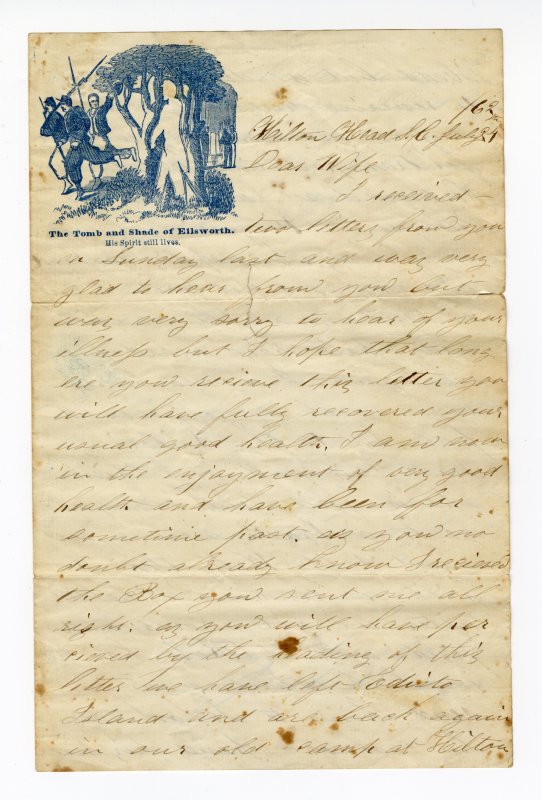 The Tomb and Shade of Ellsworth.
His Spirit still lives.
/62
Hilton Head S.C. July 24
Dear Wife
I received
two letters from you
on Sunday last and was very
glad to hear from you but
was very sorry to hear of your
illness but I hope that long
ere you recieve this letter you
will have fully recovered your
usual good health. I am now
in the enjoyment of very good
health and have been for
sometime past. as you no
doubt already know I recieved
the Box you sent me all
right. as you will have per
cieved by the heading of this
letter we have left Edisto
Island and are back again
in our old camp at Hilton